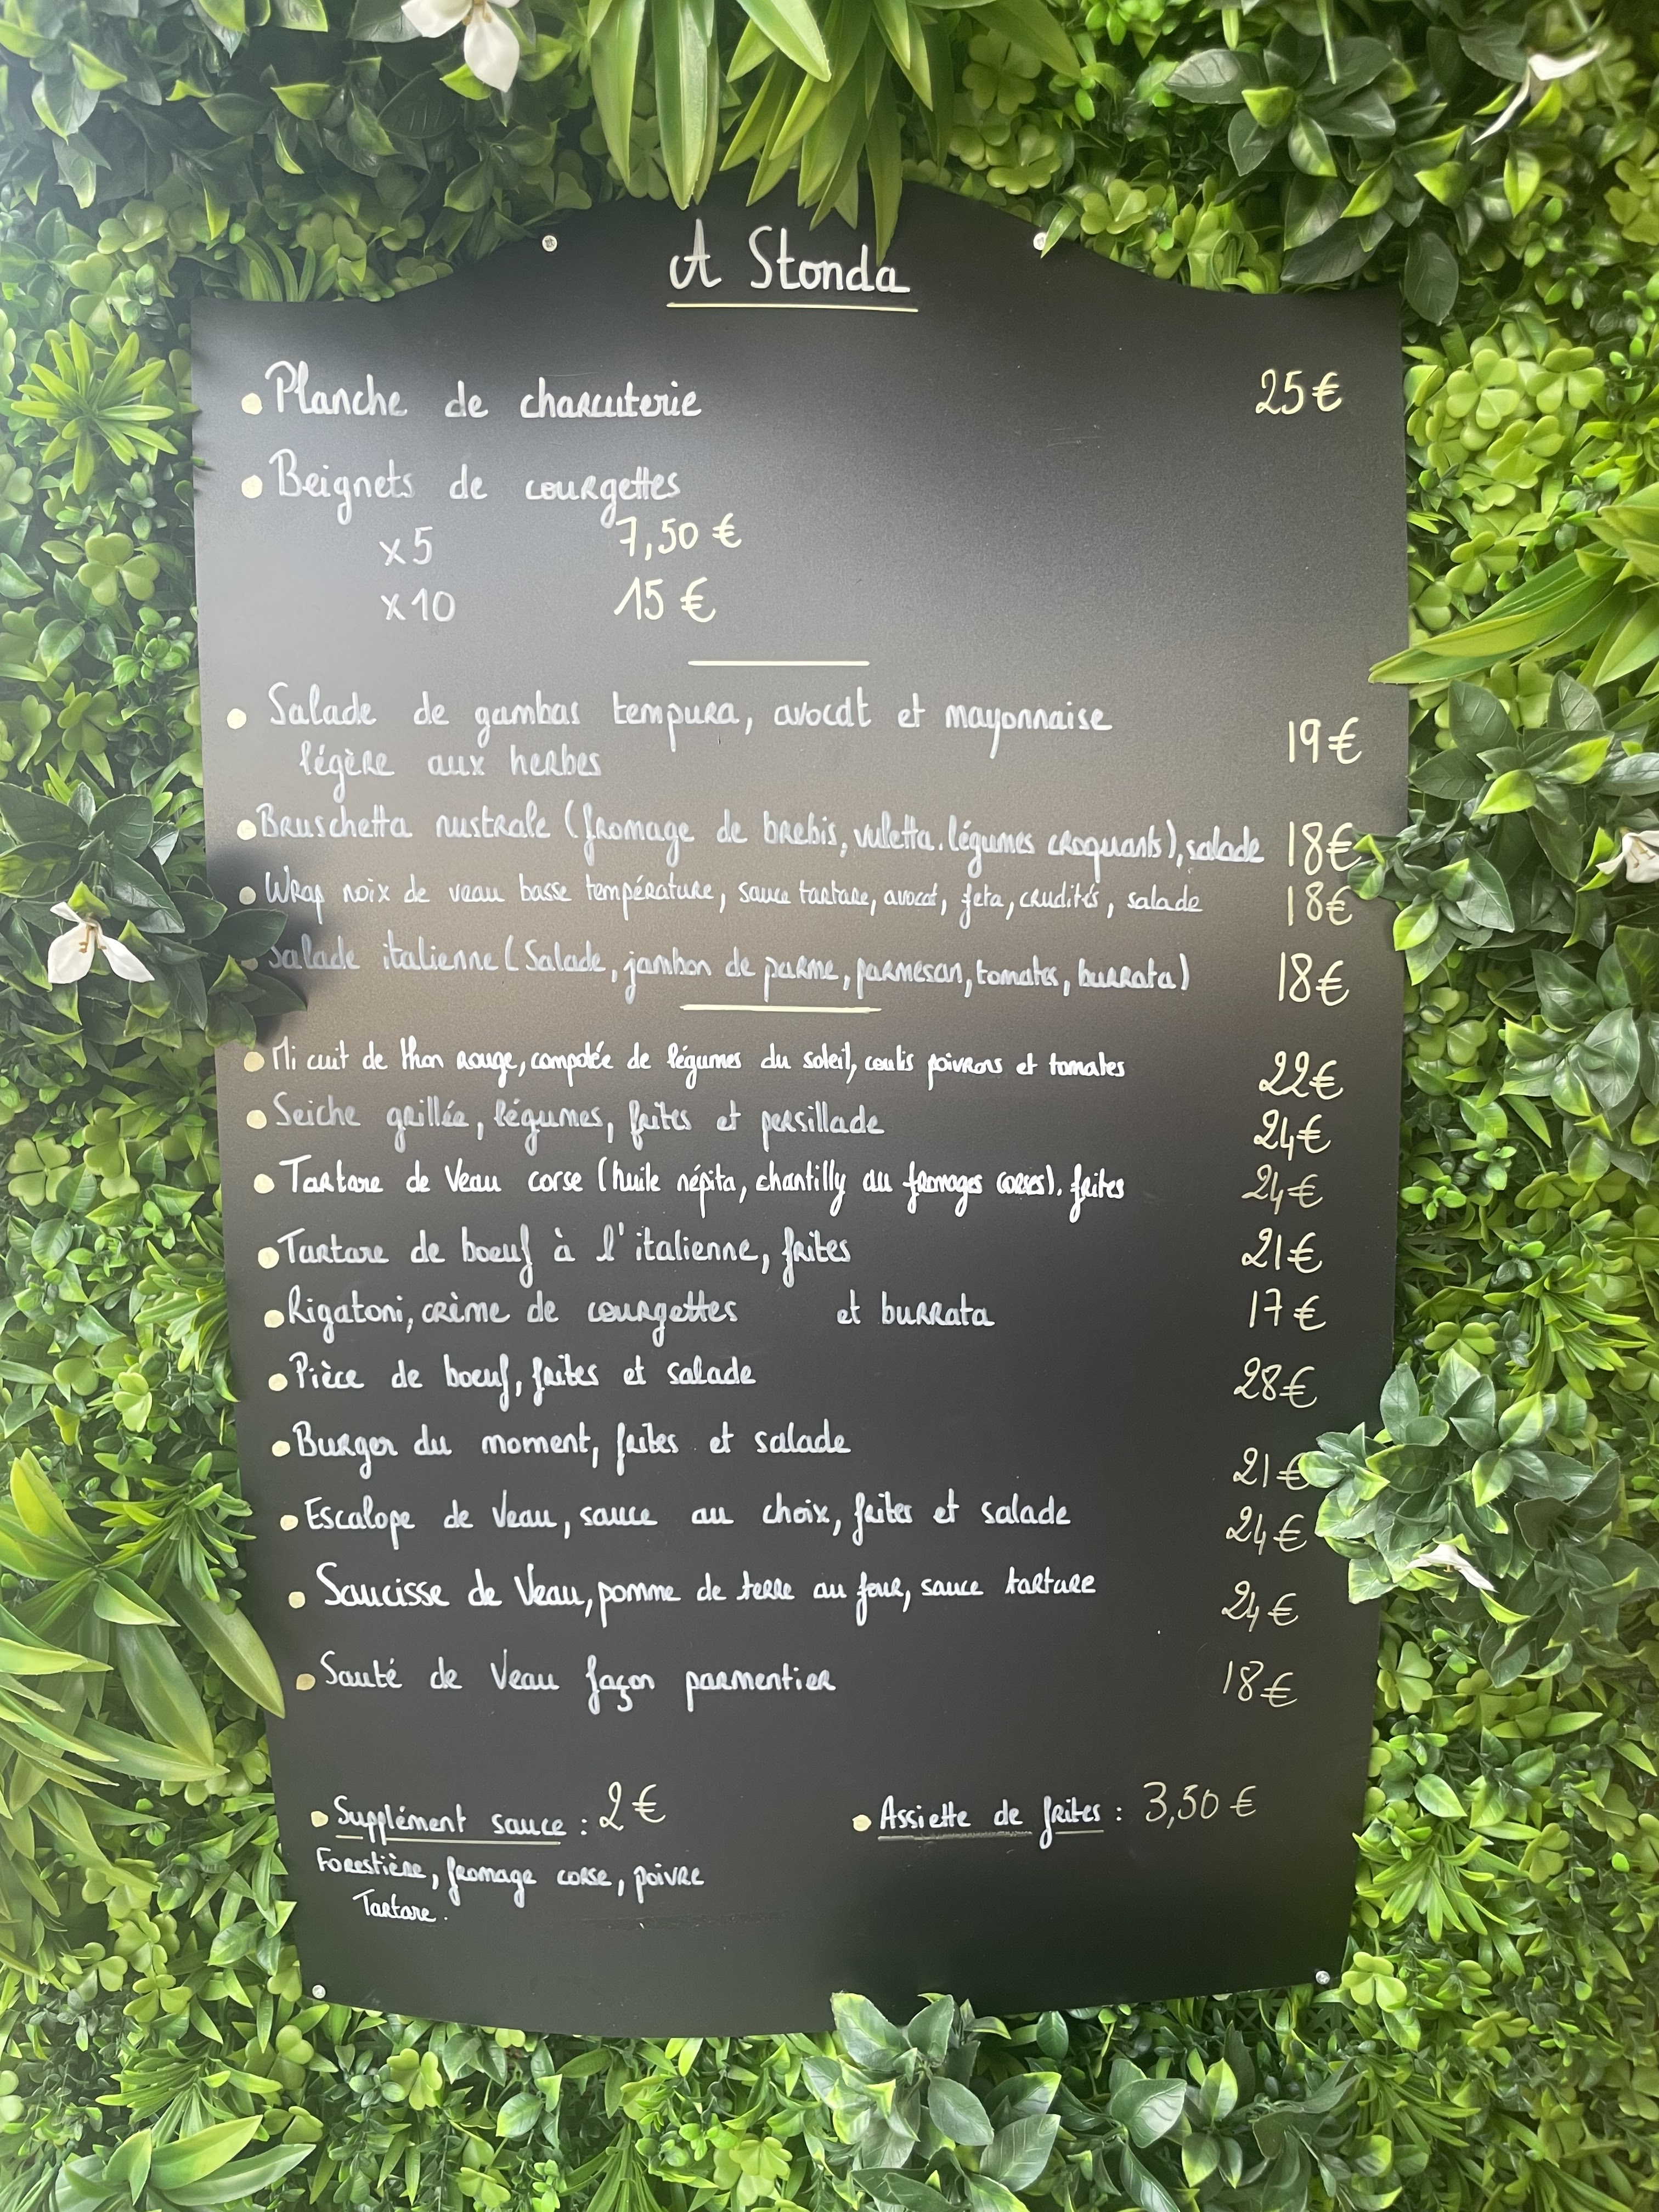 A Stonda
• Planche de charcuterie 25€
• Beignets de courgettes
x5 7,50 €
x10 15 €
• Salade de gambas tempura, avocat et mayonnaise
légère aux herbes 19€
• Bruschetta nustrale (fromage de brebis, vuletta, légumes croquants), salade 18€
• Wrap noix de veau basse température, sauce tartare, avocat, feta, crudités, salade 18€
• Salade italienne (Salade, jambon de parme, parmesan, tomates, burrata) 18€
• Mi cuit de thon rouge, compotée de légumes du soleil, coulis poivrons et tomates 22€
• Seiche grillée, légumes, frites et persillade 24€
• Tartare de Veau corse (huile népita, chantilly au fromages corses), frites 24€
• Tartare de boeuf à l'italienne, frites 21€
• Rigatoni, crème de courgettes et burrata 17€
• Pièce de boeuf, frites et salade 28€
• Burger du moment, frites et salade 21€
• Escalope de Veau, sauce au choix, frites et salade 24€
• Saucisse de Veau, pomme de terre au four, sauce tartare 24€
• Sauté de Veau façon parmentier 18€
• Supplément sauce : 2€ • Assiette de frites : 3,50 €
Forestière, fromage corse, poivre
Tartare.